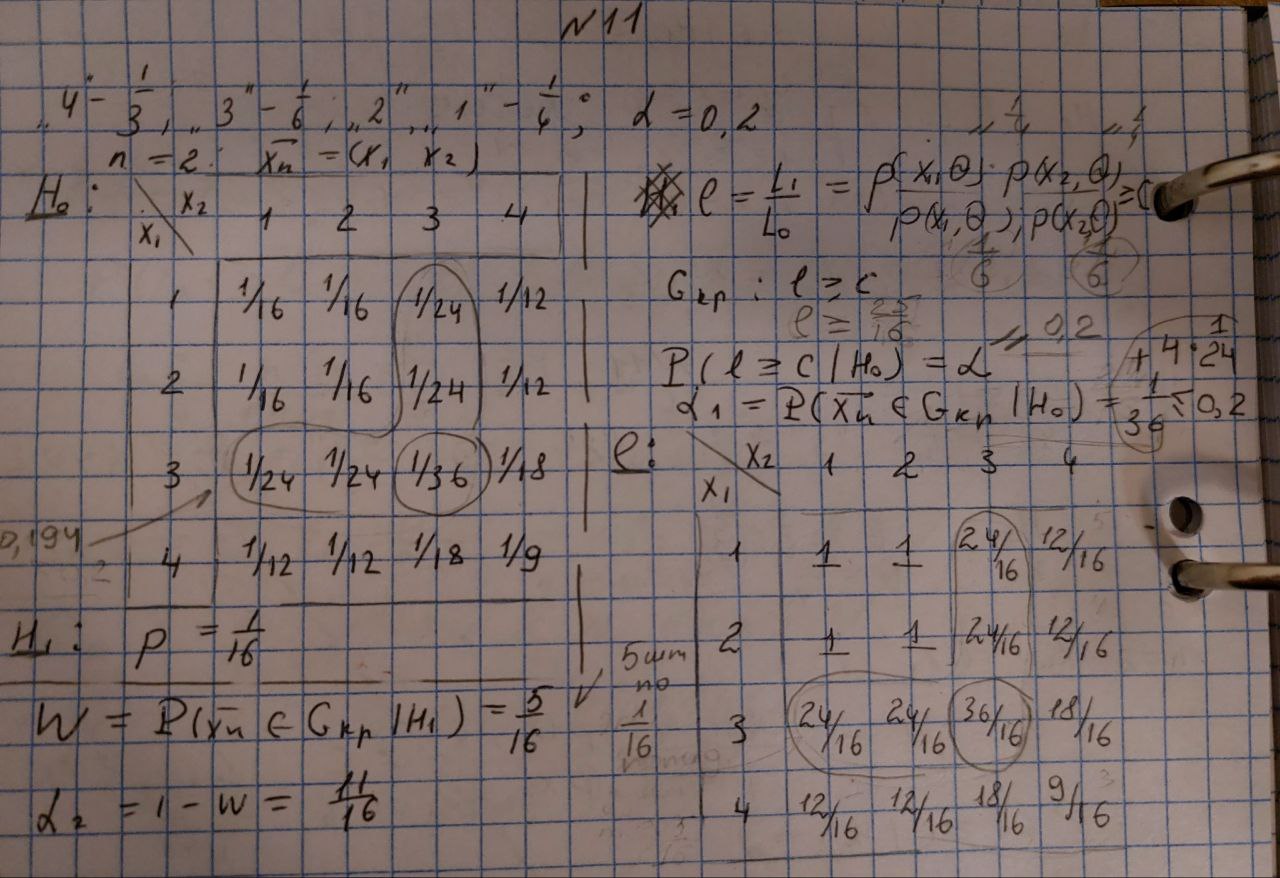 N11
„4" - 1/3, „3" - 1/6, „2", „1" - 1/4; α = 0,2
n = 2: x̄n = (x₁ x₂)
H₀:
x₁ \ x₂ 1 2 3 4
1 1/16 1/16 1/24 1/12
2 1/16 1/16 1/24 1/12
3 1/24 1/24 1/36 1/18
4 1/12 1/12 1/18 1/9
0,194
H₁: p = 1/16
W = P(x̄n ∈ Gкр | H₁) = 5/16
α₂ = 1 - W = 11/16
ℓ = L₁/L₀ = p(x₁,θ) · p(x₂,θ) / p(x₁,θ), p(x₂,θ) ≥ C
1/6 1/6
Gкр : ℓ ≥ c
ℓ ≥ 25/16
P(ℓ ≥ c | H₀) = α
0,2
α₁ = P(x̄n ∈ Gкр | H₀) = 1/36 + 4 · 1/24 ≤ 0,2
ℓ:
x₁ \ x₂ 1 2 3 4
1 1 1 24/16 12/16
2 1 1 24/16 12/16
3 24/16 24/16 36/16 18/16
4 12/16 12/16 18/16 9/16
5 шт
по
1/16